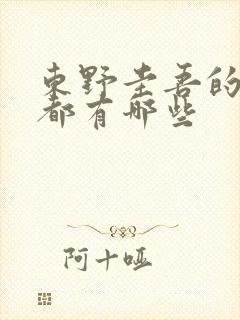 東野圭吾的
都有哪些
阿十哑